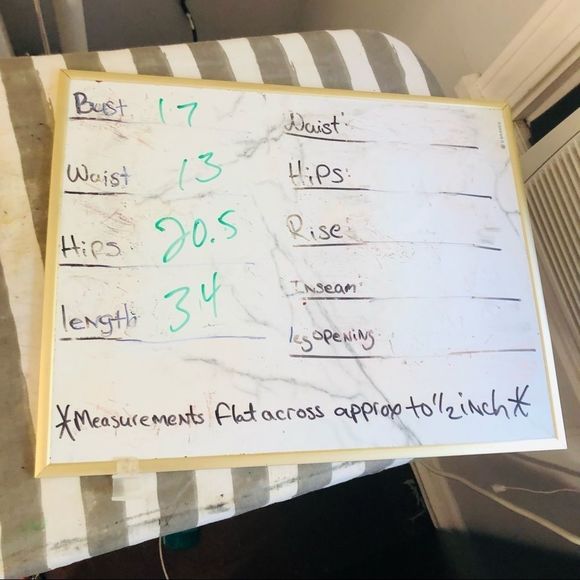 Bust 17
Waist 13
Hips 20.5
length 34
Waist:
HiPS:
Rise:
Inseam:
leg opening:
*Measurements flat across approx to 1/2 inch*